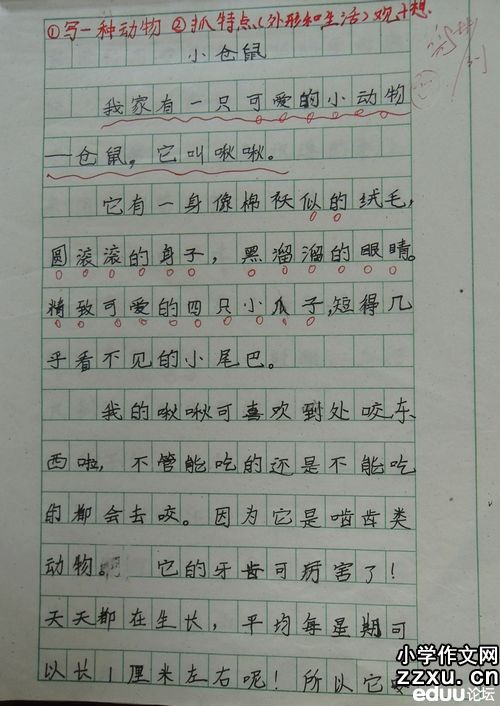 ①写一种动物 ②抓特点(外形和生活)观+想
小仓鼠
我家有一只可爱的小动物
——仓鼠，它叫啾啾。
它有一身像棉袄似的绒毛，
圆滚滚的身子，黑溜溜的眼睛。
精致可爱的四只小爪子,短得几
乎看不见的小尾巴。
我的啾啾可喜欢到处咬东
西啦，不管能吃的还是不能吃
的都会去咬。因为它是啮齿类
动物。它的牙齿可厉害了！
天天都在生长，平均每星期可
以长1厘米左右呢！所以它
小学作文网
zzxu.cn
eduu论坛